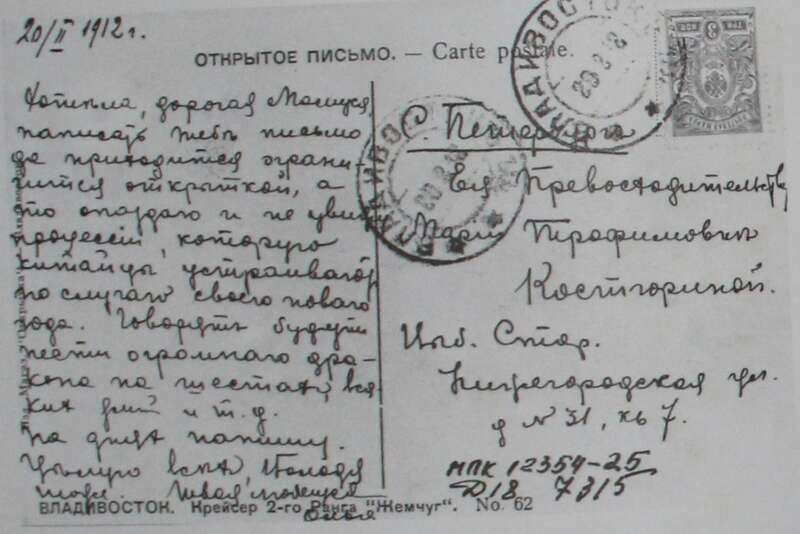 20/II 1912 г.
ОТКРЫТОЕ ПИСЬМО. — Carte postale.
ВЛАДИВОСТОК
20 2 12
Хотѣла, дорогая Мамуся,
написать тебѣ письмо
да приходится ограни-
читься открыткой, а
то опоздаю и не увижу
процессіи, которую
китайцы устраиваютъ
по случаю своего новаго
года. Говорятъ будутъ
нести огромнаго дра-
кона на шестахъ, вся
кихъ змѣй и т.д.
На дняхъ напишу.
Цѣлую всѣхъ, Володя
тоже. Твоя
Ольга
С. Петербургъ
Ея Превосходительству
Маріи Трофимовнѣ
Костюриной.
Выб. Стор.
Нижегородская ул.
д № 31, кв 7.
МПК 12354-25
Д18 7315
ВЛАДИВОСТОК. Крейсер 2-го Ранга "Жемчуг". No. 62